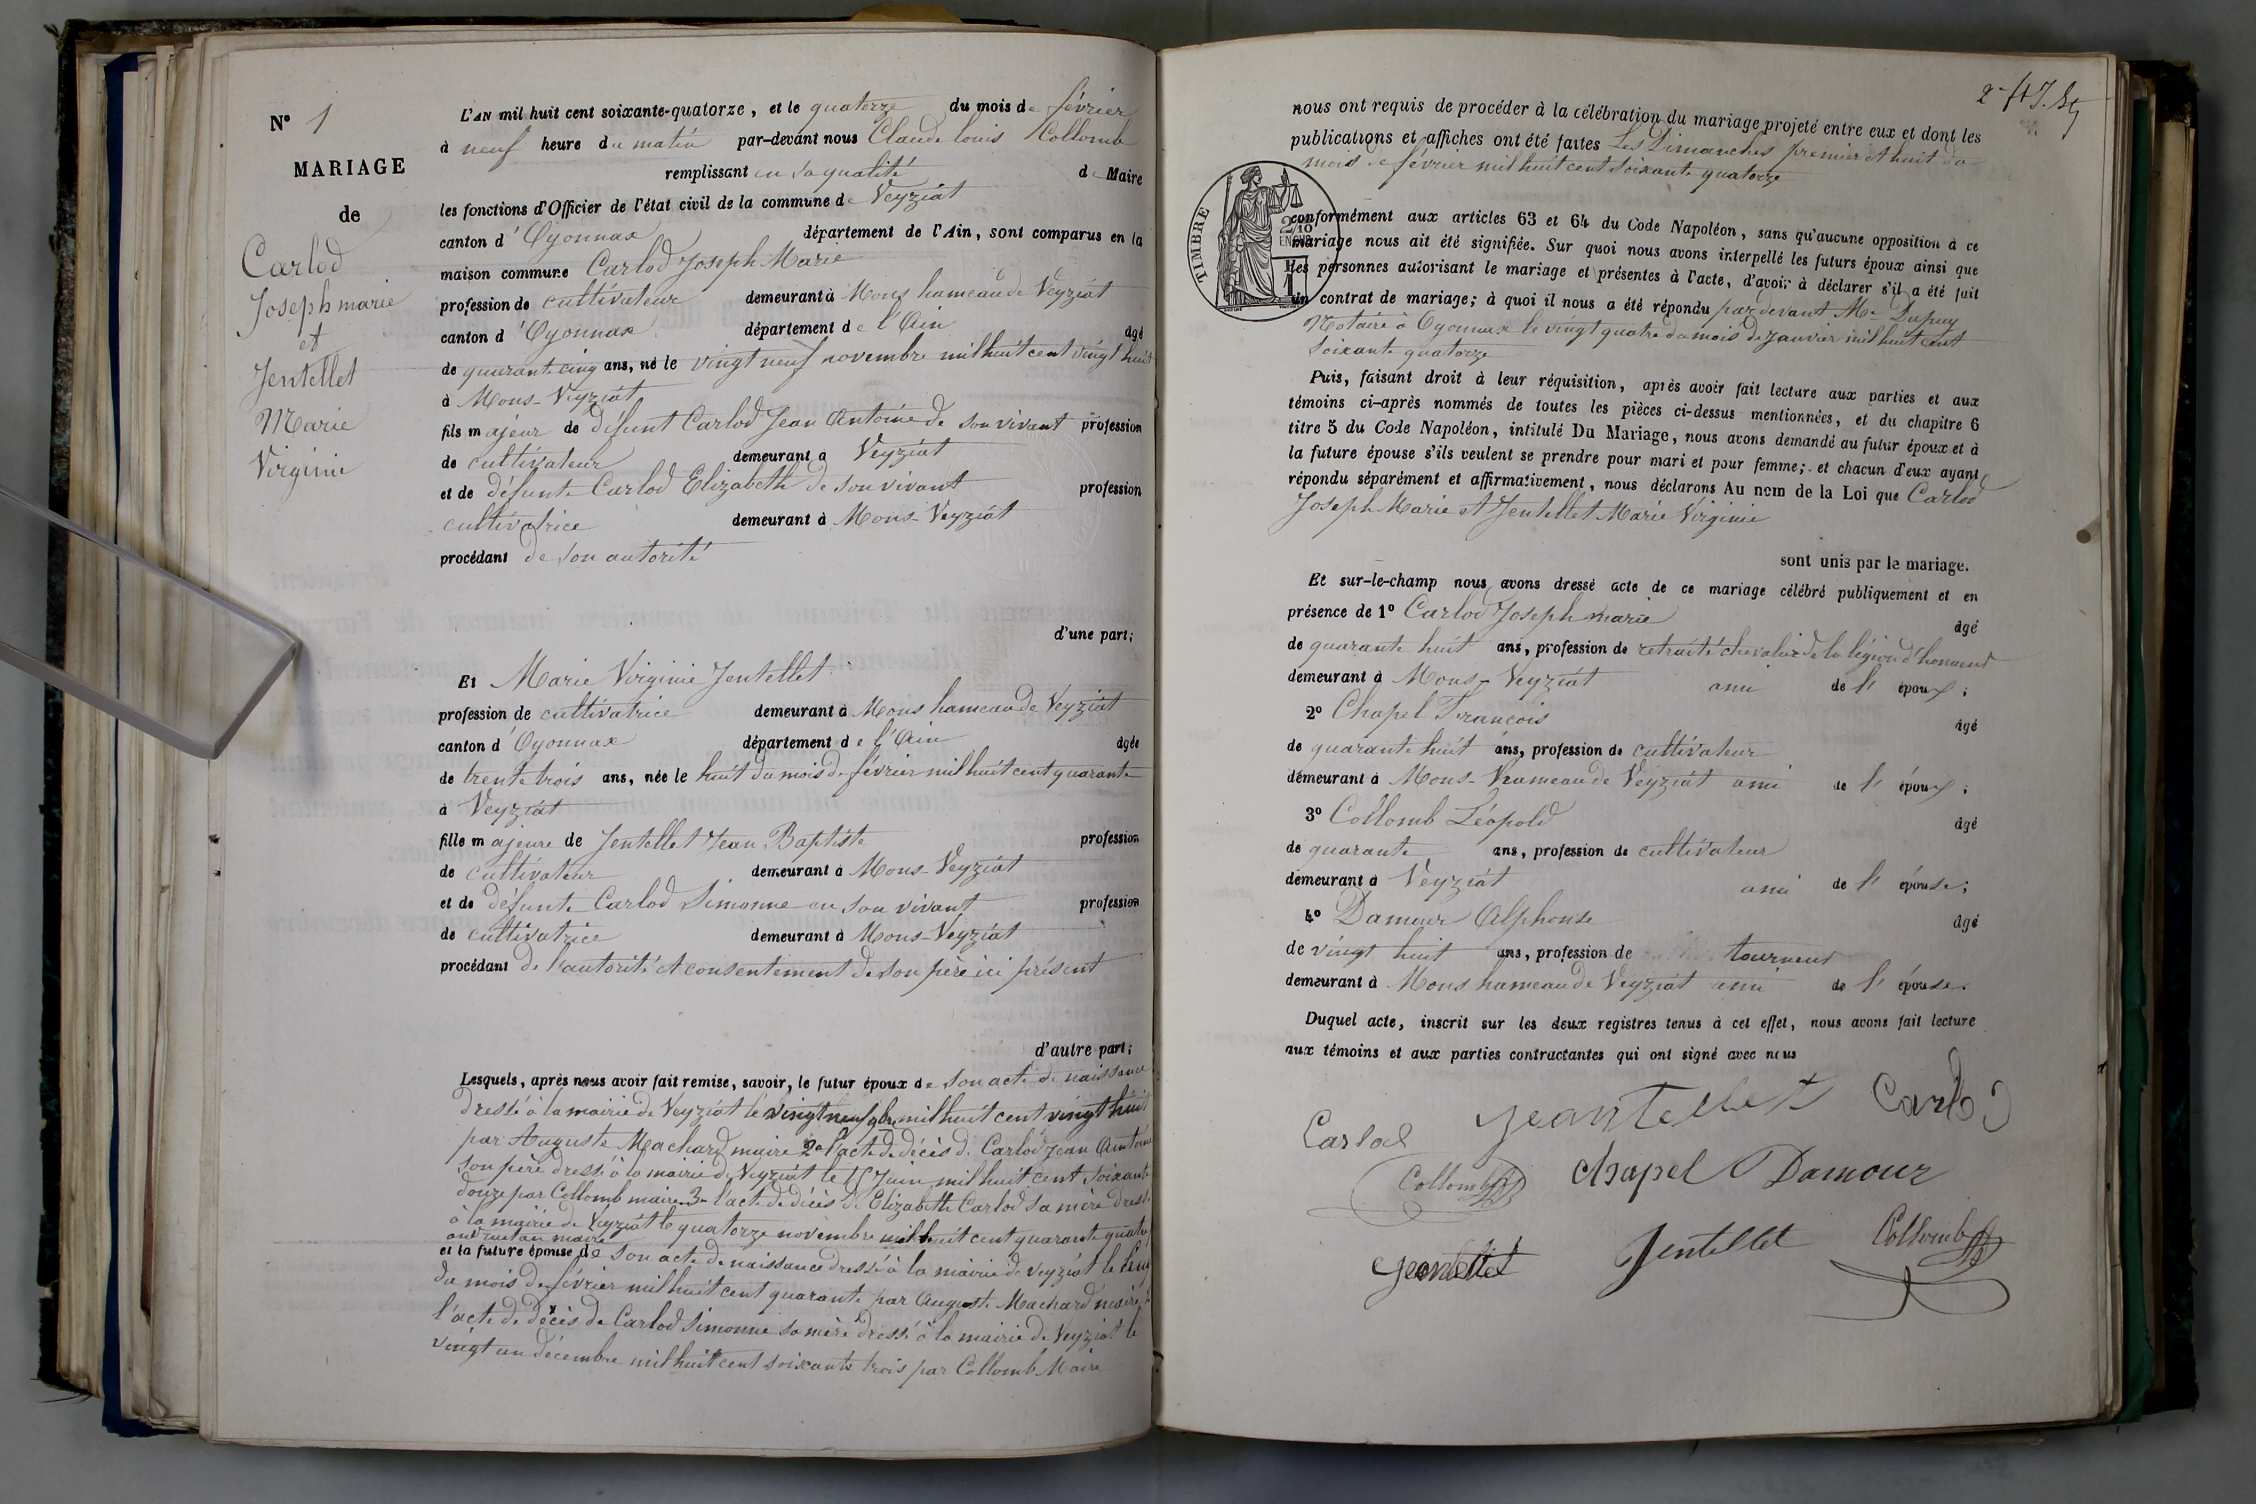 N° 1
MARIAGE
de
Carlod
Joseph marie
et
Jentellet
Marie
Virginie
L'AN mil huit cent soixante-quatorze, et le quatorze du mois de février
à neuf heure du matin par-devant nous Claude louis Collomb
remplissant en sa qualité de Maire
les fonctions d'Officier de l'état civil de la commune de Veyziat
canton d'Oyonnax département de l'Ain, sont comparus en la
maison commune Carlod Joseph Marie
profession de cultivateur demeurant à Mons hameau de Veyziat
canton d'Oyonnax département de l'Ain âgé
de quarante cinq ans, né le vingt neuf novembre mil huit cent vingt huit
à Mons-Veyziat
fils majeur de défunt Carlod Jean Antoine de son vivant profession
de cultivateur demeurant à Veyziat
et de défunte Carlod Elizabeth de son vivant profession
cultivatrice demeurant à Mons-Veyziat
procédant de son autorité
d'une part;
Et Marie Virginie Jentellet
profession de cultivatrice demeurant à Mons hameau de Veyziat
canton d'Oyonnax département de l'Ain âgée
de trente trois ans, née le huit du mois de février mil huit cent quarante
à Veyziat
fille majeure de Jentellet Jean Baptiste profession
de cultivateur demeurant à Mons-Veyziat
et de défunte Carlod Simonne en son vivant profession
de cultivatrice demeurant à Mons-Veyziat
procédant de l'autorité et consentement de son père ici présent
d'autre part;
Lesquels, après nous avoir fait remise, savoir, le futur époux de son acte de naissance
dressé à la mairie de Veyziat le vingt neuf 9bre mil huit cent vingt huit
par Auguste Machard maire 2° l'acte de décès de Carlod Jean Antoine
son père dressé à la mairie de Veyziat le 15 Juin mil huit cent soixante
douze par Collomb maire 3° l'acte de décès de Elizabeth Carlod sa mère dressé
à la mairie de Veyziat le quatorze novembre mil huit cent quarante quatre
maire
et la future épouse de son acte de naissance dressé à la mairie de Veyziat le
du mois de février mil huit cent quarante par Auguste Machard maire
l'acte de décès de Carlod Simonne sa mère dressé à la mairie de Veyziat le
vingt un décembre mil huit cent soixante trois par Collomb Maire
nous ont requis de procéder à la célébration du mariage projeté entre eux et dont les
publications et affiches ont été faites Les Dimanches premier et huit du
mois de février mil huit cent soixante quatorze
TIMBRE
2/10
EN SUS
1
conformément aux articles 63 et 64 du Code Napoléon, sans qu'aucune opposition à ce
mariage nous ait été signifiée. Sur quoi nous avons interpellé les futurs époux ainsi que
les personnes autorisant le mariage et présentes à l'acte, d'avoir à déclarer s'il a été fait
un contrat de mariage; à quoi il nous a été répondu par devant Me Dupuy
Notaire à Oyonnax le vingt quatre du mois de Janvier mil huit cent
soixante quatorze
Puis, faisant droit à leur réquisition, après avoir fait lecture aux parties et aux
témoins ci-après nommés de toutes les pièces ci-dessus mentionnées, et du chapitre 6
titre 5 du Code Napoléon, intitulé Du Mariage, nous avons demandé au futur époux et à
la future épouse s'ils veulent se prendre pour mari et pour femme; et chacun d'eux ayant
répondu séparément et affirmativement, nous déclarons Au nom de la Loi que Carlod
Joseph Marie et Jentellet Marie Virginie
sont unis par le mariage.
Et sur-le-champ nous avons dressé acte de ce mariage célébré publiquement et en
présence de 1° Carlod Joseph marie âgé
de quarante huit ans, profession de retraité chevalier de la légion d'honneur
demeurant à Mons-Veyziat ami de l'époux;
2° Chapel François âgé
de quarante huit ans, profession de cultivateur
demeurant à Mons-hameau de Veyziat ami de l'époux;
3° Collomb Léopold âgé
de quarante ans, profession de cultivateur
demeurant à Veyziat ami de l'épouse;
4° Damour Alphonse âgé
de vingt huit ans, profession de tourneur
demeurant à Mons hameau de Veyziat ami de l'épouse.
Duquel acte, inscrit sur les deux registres tenus à cet effet, nous avons fait lecture
aux témoins et aux parties contractantes qui ont signé avec nous
Carlod Jeantellet Carlod
Collomb Chapel Damour
Jeantellet Jentellet Collomb